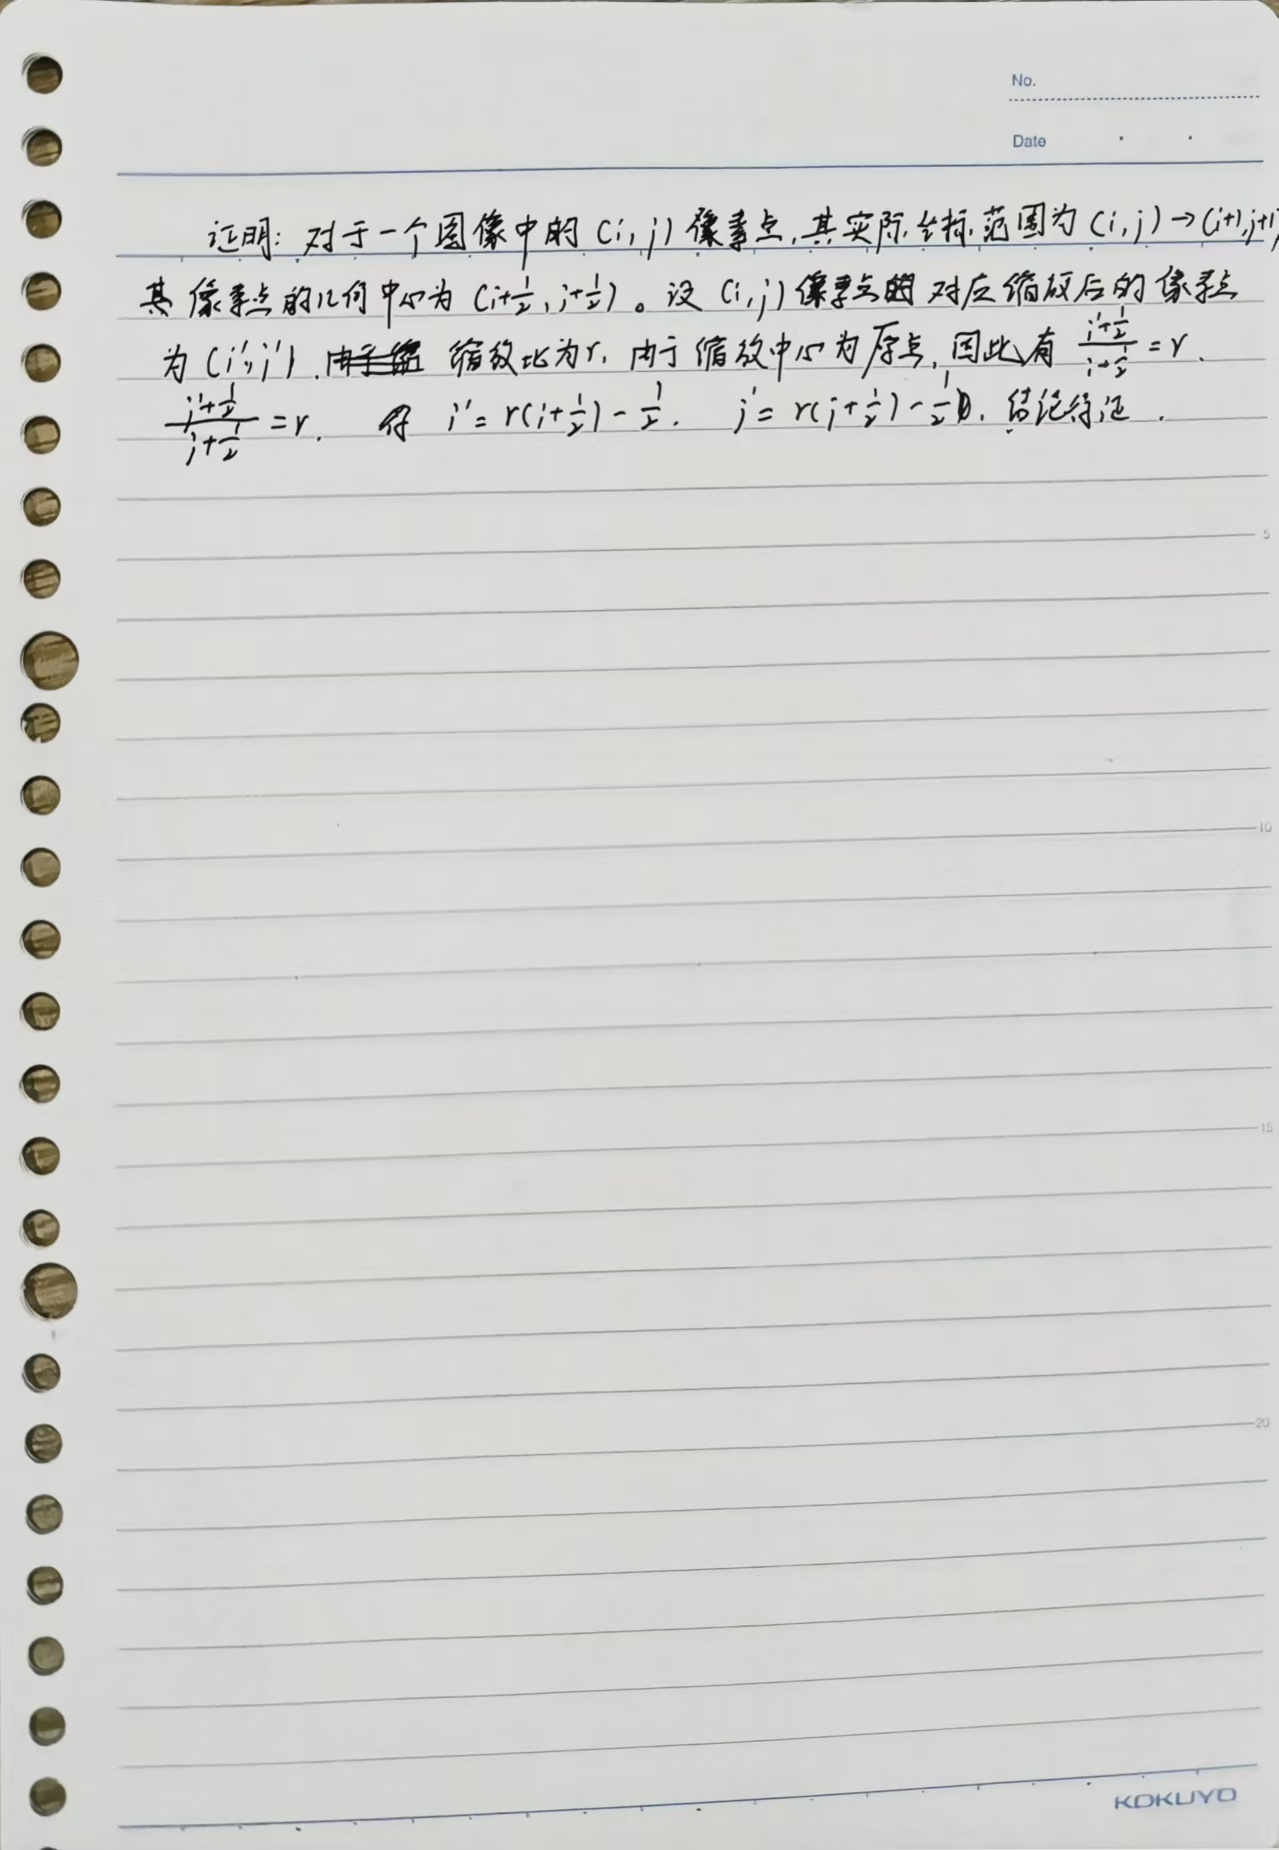 No.
Date
证明: 对于一个图像中的 (i, j) 像素点, 其实际坐标范围为 (i, j) → (i+1, j+1)
其像素点的几何中心为 (i+½, j+½)。设 (i, j) 像素点 对应缩放后的像素点
为 (i', j'). 缩放比为 r, 由于缩放中心为原点, 因此有 (i'+½)/(i+½) = r.
(j'+½)/(j+½) = r. 得 i' = r(i+½) - ½. j' = r(j+½) - ½. 结论得证.
5
10
15
20
KOKUYO